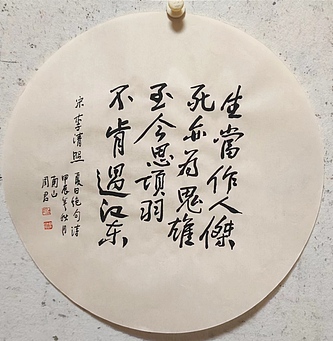 生當作人傑
死亦為鬼雄
至今思項羽
不肯過江東
宋李清照
夏日絕句詩
甲辰年秋月
南山
周君